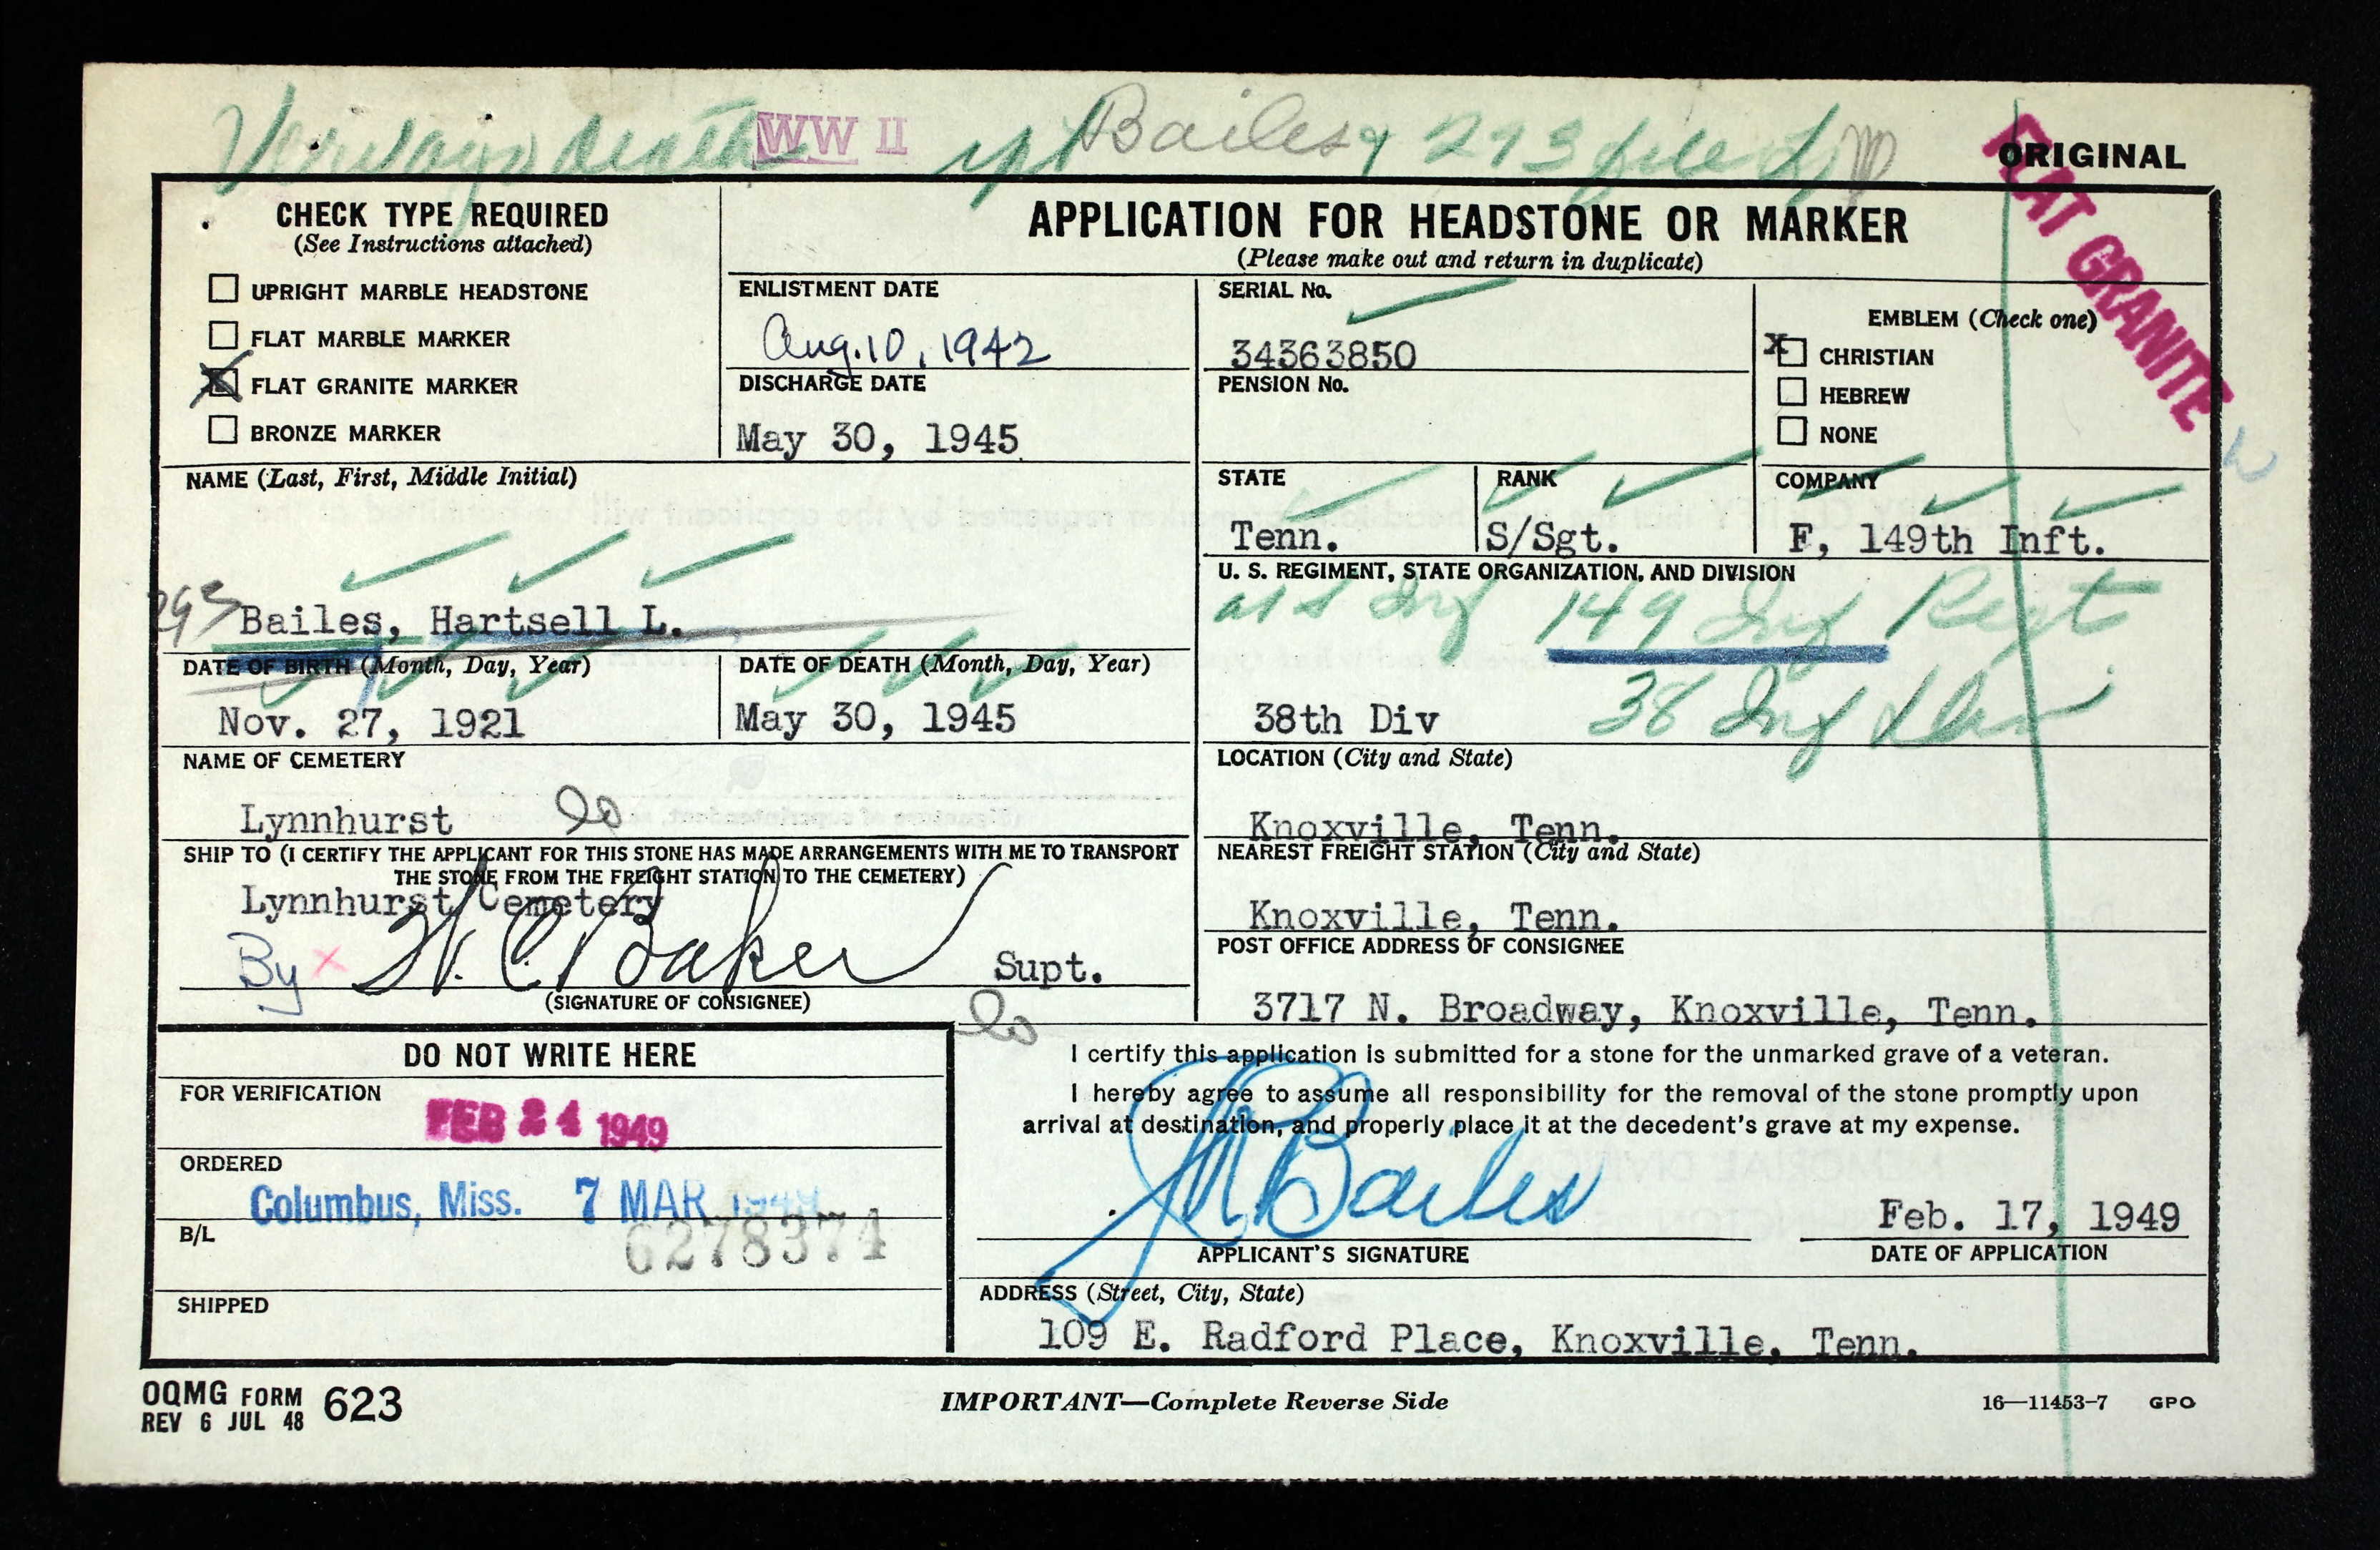 WW II Bailes
ORIGINAL
FLAT GRANITE
CHECK TYPE REQUIRED
(See Instructions attached)
UPRIGHT MARBLE HEADSTONE
FLAT MARBLE MARKER
X FLAT GRANITE MARKER
BRONZE MARKER
APPLICATION FOR HEADSTONE OR MARKER
(Please make out and return in duplicate)
ENLISTMENT DATE
Aug. 10, 1942
DISCHARGE DATE
May 30, 1945
SERIAL No.
34363850
PENSION No.
EMBLEM (Check one)
X CHRISTIAN
HEBREW
NONE
NAME (Last, First, Middle Initial)
Bailes, Hartsell L.
STATE
Tenn.
RANK
S/Sgt.
COMPANY
F, 149th Inft.
U. S. REGIMENT, STATE ORGANIZATION, AND DIVISION
149 Inf Regt
38th Div 38 Inf Div
DATE OF BIRTH (Month, Day, Year)
Nov. 27, 1921
DATE OF DEATH (Month, Day, Year)
May 30, 1945
NAME OF CEMETERY
Lynnhurst
LOCATION (City and State)
Knoxville, Tenn.
SHIP TO (I CERTIFY THE APPLICANT FOR THIS STONE HAS MADE ARRANGEMENTS WITH ME TO TRANSPORT
THE STONE FROM THE FREIGHT STATION TO THE CEMETERY)
Lynnhurst Cemetery
By x H. C. Baker Supt.
(SIGNATURE OF CONSIGNEE)
NEAREST FREIGHT STATION (City and State)
Knoxville, Tenn.
POST OFFICE ADDRESS OF CONSIGNEE
3717 N. Broadway, Knoxville, Tenn.
DO NOT WRITE HERE
FOR VERIFICATION
FEB 24 1949
ORDERED
Columbus, Miss. 7 MAR 1949
B/L
6278374
SHIPPED
I certify this application is submitted for a stone for the unmarked grave of a veteran.
I hereby agree to assume all responsibility for the removal of the stone promptly upon
arrival at destination, and properly place it at the decedent's grave at my expense.
Bailes
APPLICANT'S SIGNATURE
Feb. 17, 1949
DATE OF APPLICATION
ADDRESS (Street, City, State)
109 E. Radford Place, Knoxville, Tenn.
OQMG FORM 623
REV 6 JUL 48
IMPORTANT—Complete Reverse Side
16—11453-7 GPO